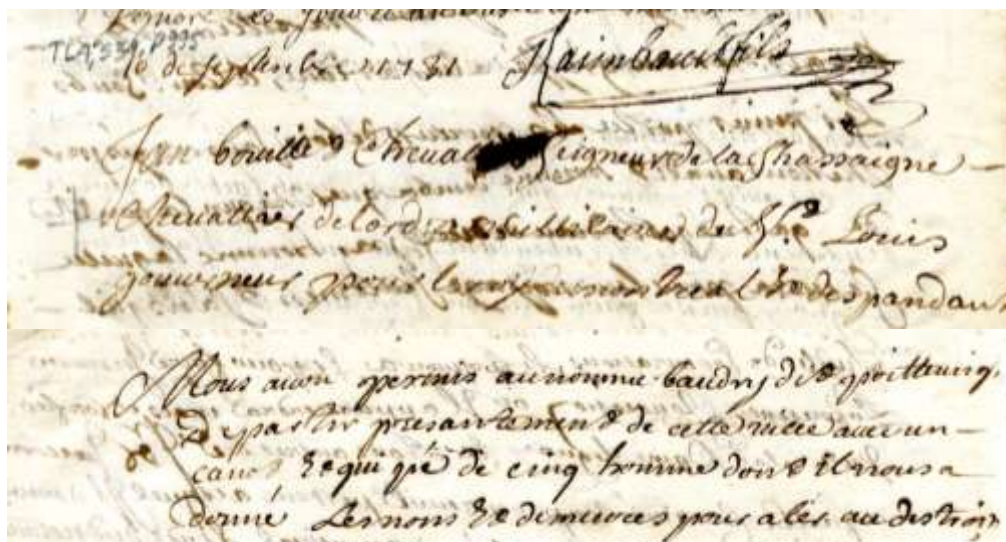 TL4, S34, P995
10 de septembre 1731 Raimbault fils
Jean bouillé Chevalier Seigneur de la Chassaigne
Chevallier de lordre millitaire de St Louis
gouverneur pour le roy a montreal et despandan
Nous avon permis au nomme baudry dit
De partir presantement de cette ville avec un
canot Equipé de cinq homme dont il nous a
donné Les noms Et demeures pour aler au destroit